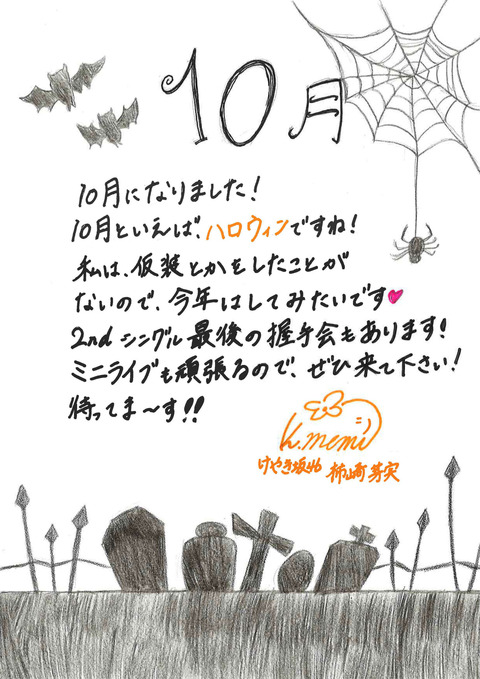 10月
10月になりました!
10月といえば、ハロウィンですね!
私は、仮装とかをしたことが
ないので、今年はしてみたいです♥
2nd シングル最後の握手会もあります!
ミニライブも頑張るので、ぜひ来て下さい!
待ってま〜す!!
K.memi
けやき坂46 柿崎芽実